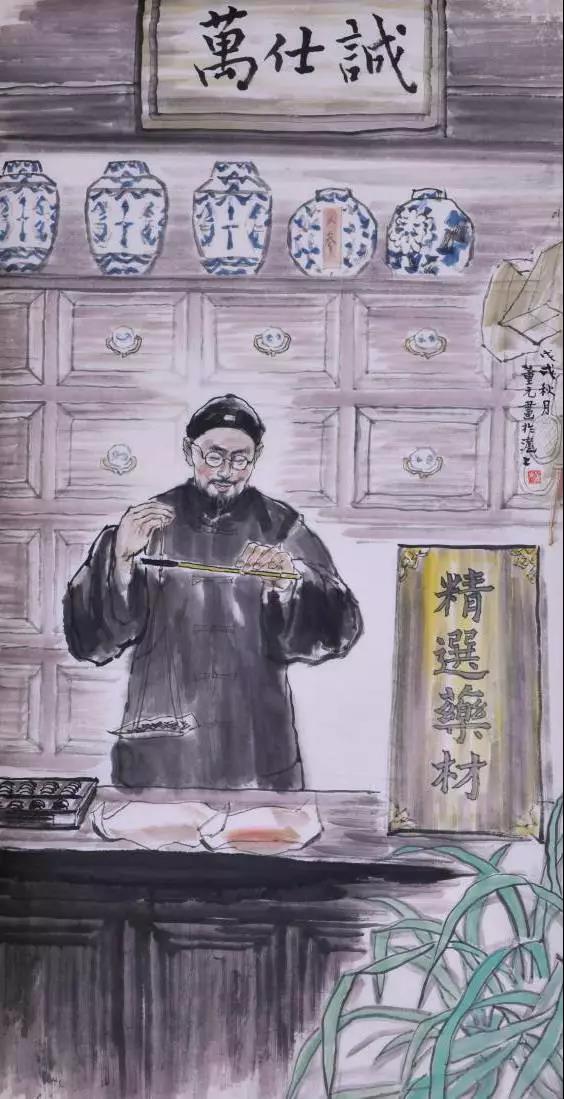 萬仕誠
人參
戊戌秋月
董元畫於滬上
精選藥材